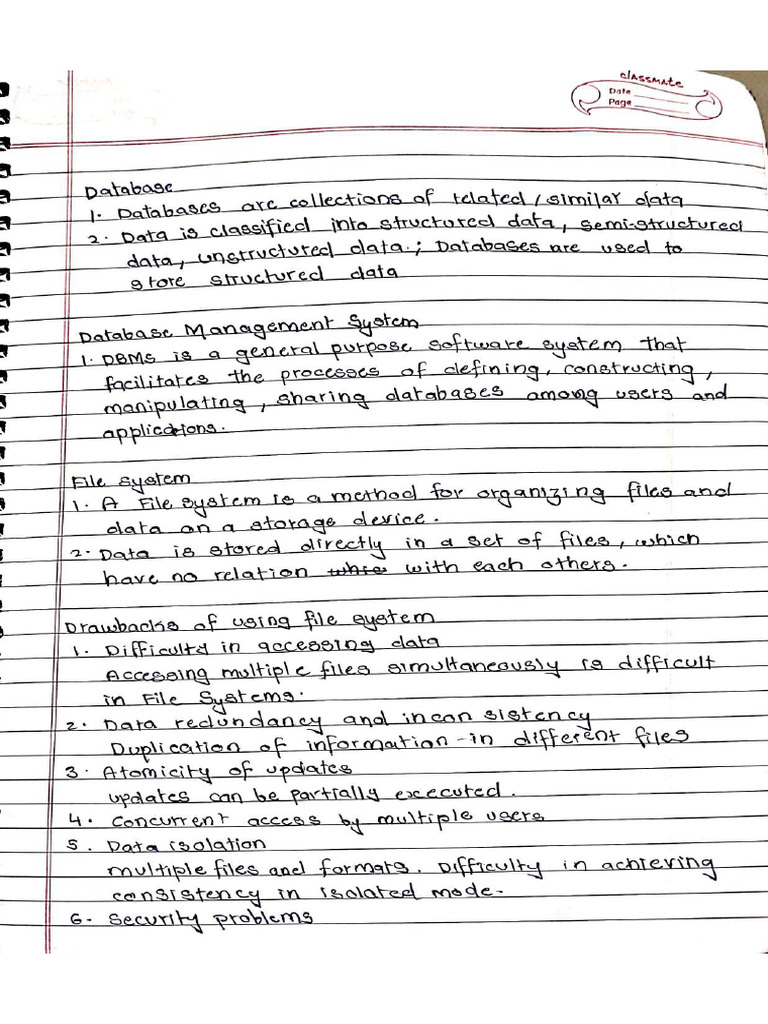 classmate
Date
Page
Database
1. Databases are collections of related / similar data
2. Data is classified into structured data, semi-structured
data, unstructured data.; Databases are used to
store structured data
Database Management System
1. DBMS is a general purpose software system that
facilitates the processes of defining, constructing,
manipulating, sharing databases among users and
applications.
File system
1. A File system is a method for organizing files and
data on a storage device.
2. Data is stored directly in a set of files, which
have no relation with each others.
Drawbacks of using file system
1. Difficultd in accessing data
Accessing multiple files simultaneously is difficult
in File Systems.
2. Data redundancy and incon sistency
Duplication of information -in different files
3. Atomicity of updates
updates can be partially executed.
4. Concurrent access by multiple users
5. Data isolation
multiple files and formats. Difficulty in achieving
consistency in isolated mode.
6. Security problems